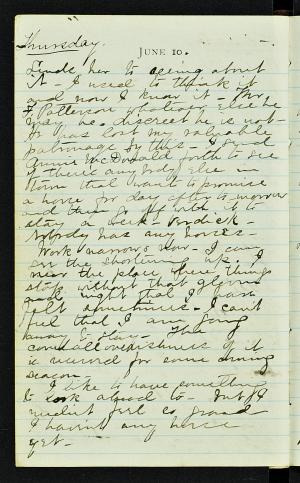 Thursday.
JUNE 10.
Linds her to seeing about
it - I used to think it
and now I know it. For
F Patterson whatever else he
may be, discreet he is not -
He has lost my valuable
patronage by this - I send
Annie McDonald forth to see
if there's anybody else in
town that want to promise
a horse for day after to-morrow
and then go off with it to
stay a week. Verdict -
Nobody has any horses -
Work narrows now - I can
see the shortening up, I
near the place where things
stop without that gloomy
night that I have
felt sometimes. I can't
feel that I am going
away to stay. The
it is uncured for some
season.
I like to have something
to look ahead to - but if I
I haven't any horse
yet -